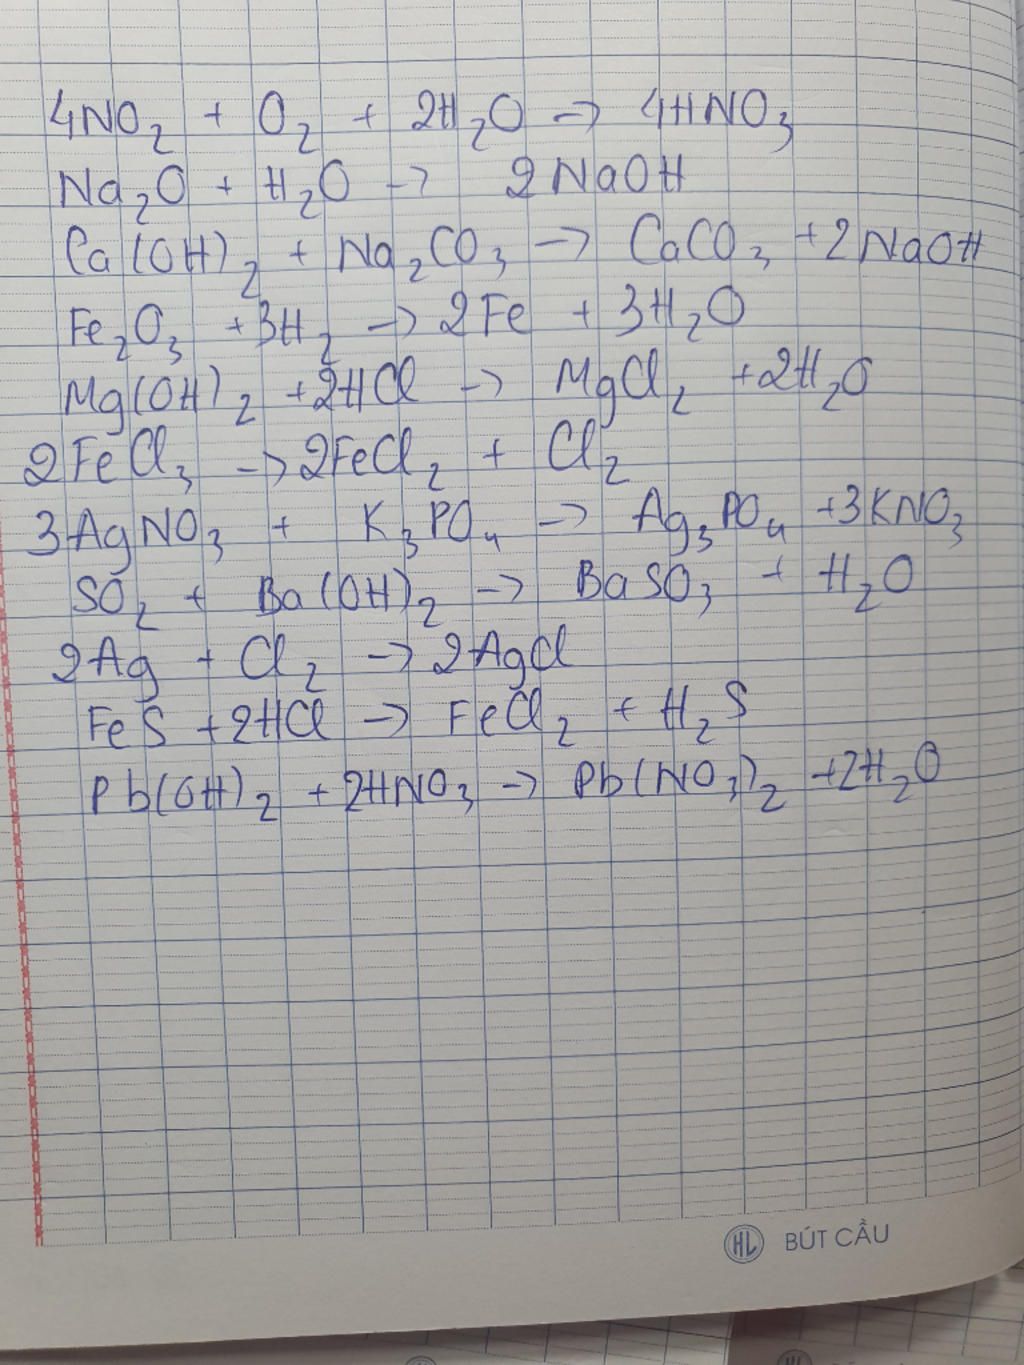 4NO₂ + O₂ + 2H₂O → 4HNO₃
Na₂O + H₂O → 2NaOH
Ca(OH)₂ + Na₂CO₃ → CaCO₃ + 2NaOH
Fe₂O₃ + 3H₂ → 2Fe + 3H₂O
Mg(OH)₂ + 2HCl → MgCl₂ + 2H₂O
2FeCl₃ → 2FeCl₂ + Cl₂
3AgNO₃ + K₃PO₄ → Ag₃PO₄ + 3KNO₃
SO₂ + Ba(OH)₂ → BaSO₃ + H₂O
2Ag + Cl₂ → 2AgCl
FeS + 2HCl → FeCl₂ + H₂S
Pb(OH)₂ + 2HNO₃ → Pb(NO₃)₂ + 2H₂O
HL BÚT CẦU
HL